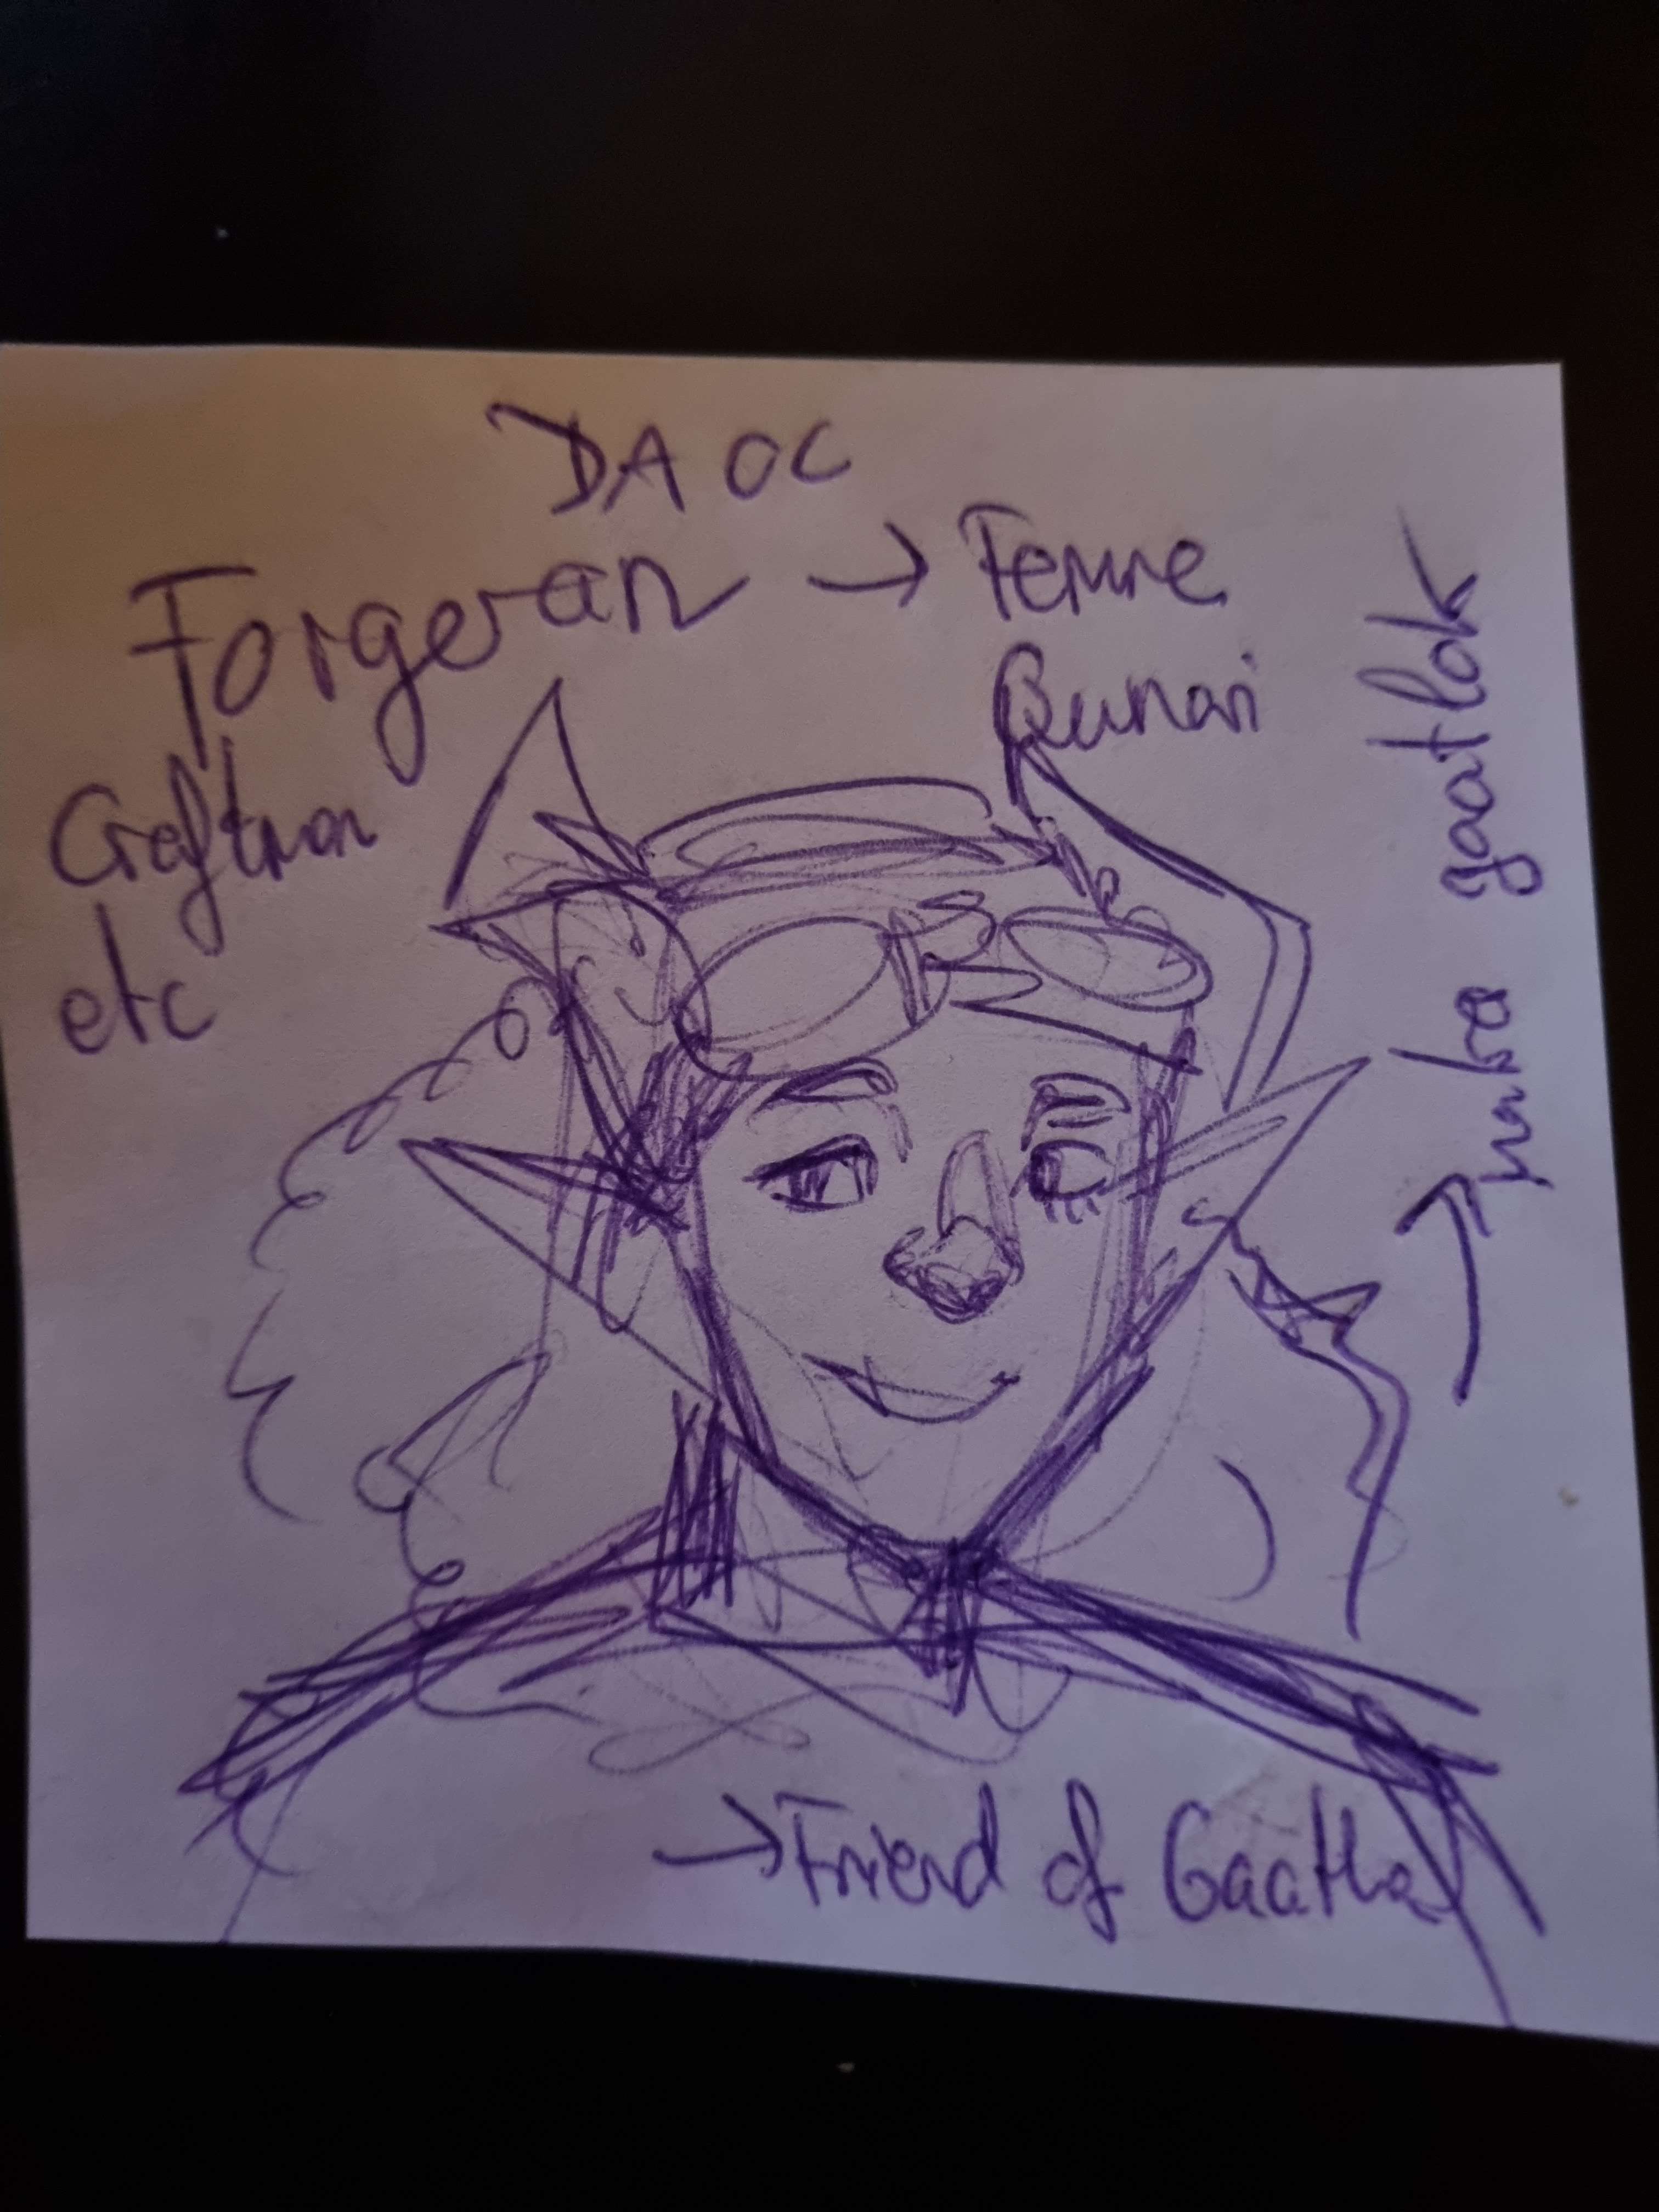 DA OC
Forgeran → Femme
Qunari
Craftman
etc
→ gaatlok
→ Friend of Gaatha